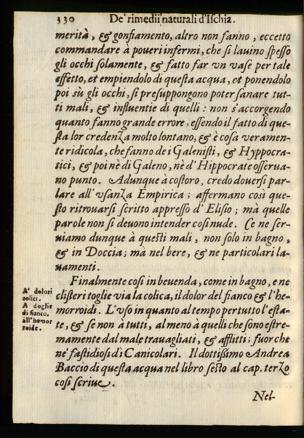 330 De' rimedii naturali d'Ischia.
merità, & gonfiamento, altro non fanno, eccetto
commandare à poveri infermi, che si lauino spesso
gli occhi solamente, & fatto far vn vase per tale
effetto, et empiendolo di questa acqua, et ponendolo
poi sù gli occhi, si presuppongono poter sanare tut-
ti mali, & influentie di quelli: non s'accorgendo
quanto fanno grande errore, essendo il fatto di que-
sta lor credenza molto lontano, & è cosa verament-
te ridicola, che fanno de i Galenisti, & Hyppocra-
tici, & poi nè di Galeno, nè d'Hippocrate osserua-
no punto. Adunque à costoro, credo douersi par-
lare all'vsanza Empirica; affermano così que-
sto ritrouarsi scritto appresso d'Elisio; mà quelle
parole non si deuono intender così nude. Ce ne ser-
uiamo dunque à questi mali, non solo in bagno,
& in Doccia; mà nel bere, & ne particolari la-
uamenti.
A' dolori
colici.
A doglie
di fianco,
all'hemor
roide.
Finalmente così in beuenda, come in bagno, e ne
clisteri toglie via la colica, il dolor del fianco & l'he-
morroidi. L'vso in quanto al tempo per tutto l'esta-
te, & se non à tutti, al meno à quelli che sono estre-
mamente dal male trauagliati, & afflitti; fuor che
nè fastidiosi dì Canicolari. Il dottissimo Andrea
Baccio di questa acqua nel libro sesto al cap. terzo
così scriue.
Nel-